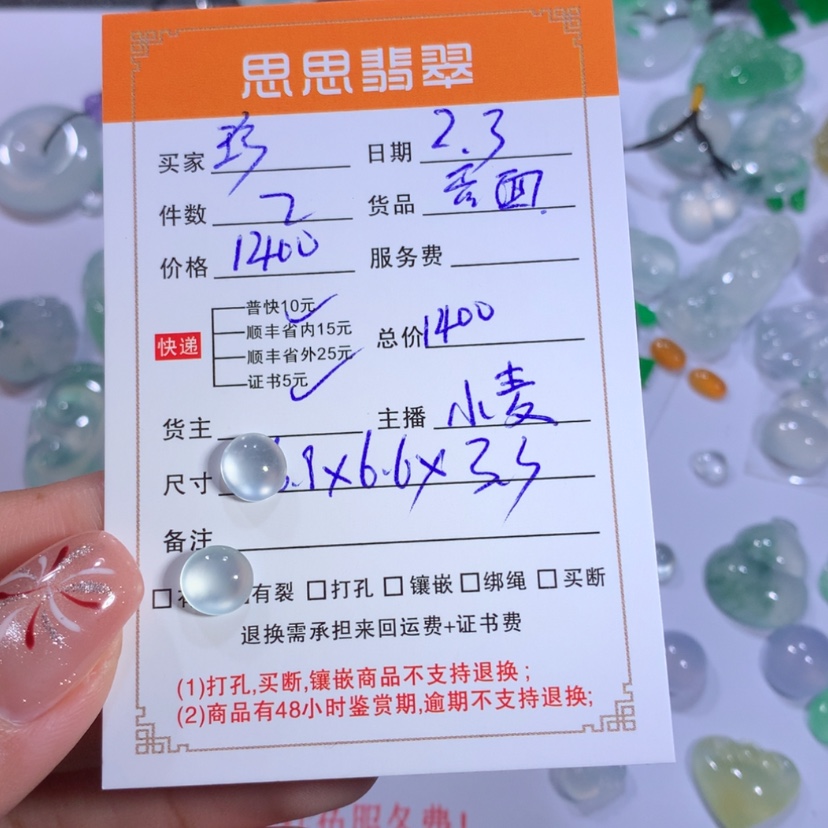 思思翡翠
买家 珍 日期 2.3
件数 2 货品 蛋面
价格 1200 服务费
快递
普快10元
顺丰省内15元
顺丰省外25元
证书5元
总价 1400
货主 主播 小麦
尺寸 .9×6.6×3.5
备注
有裂 打孔 镶嵌 绑绳 买断
退换需承担来回运费+证书费
(1)打孔,买断,镶嵌商品不支持退换;
(2)商品有48小时鉴赏期,逾期不支持退换;